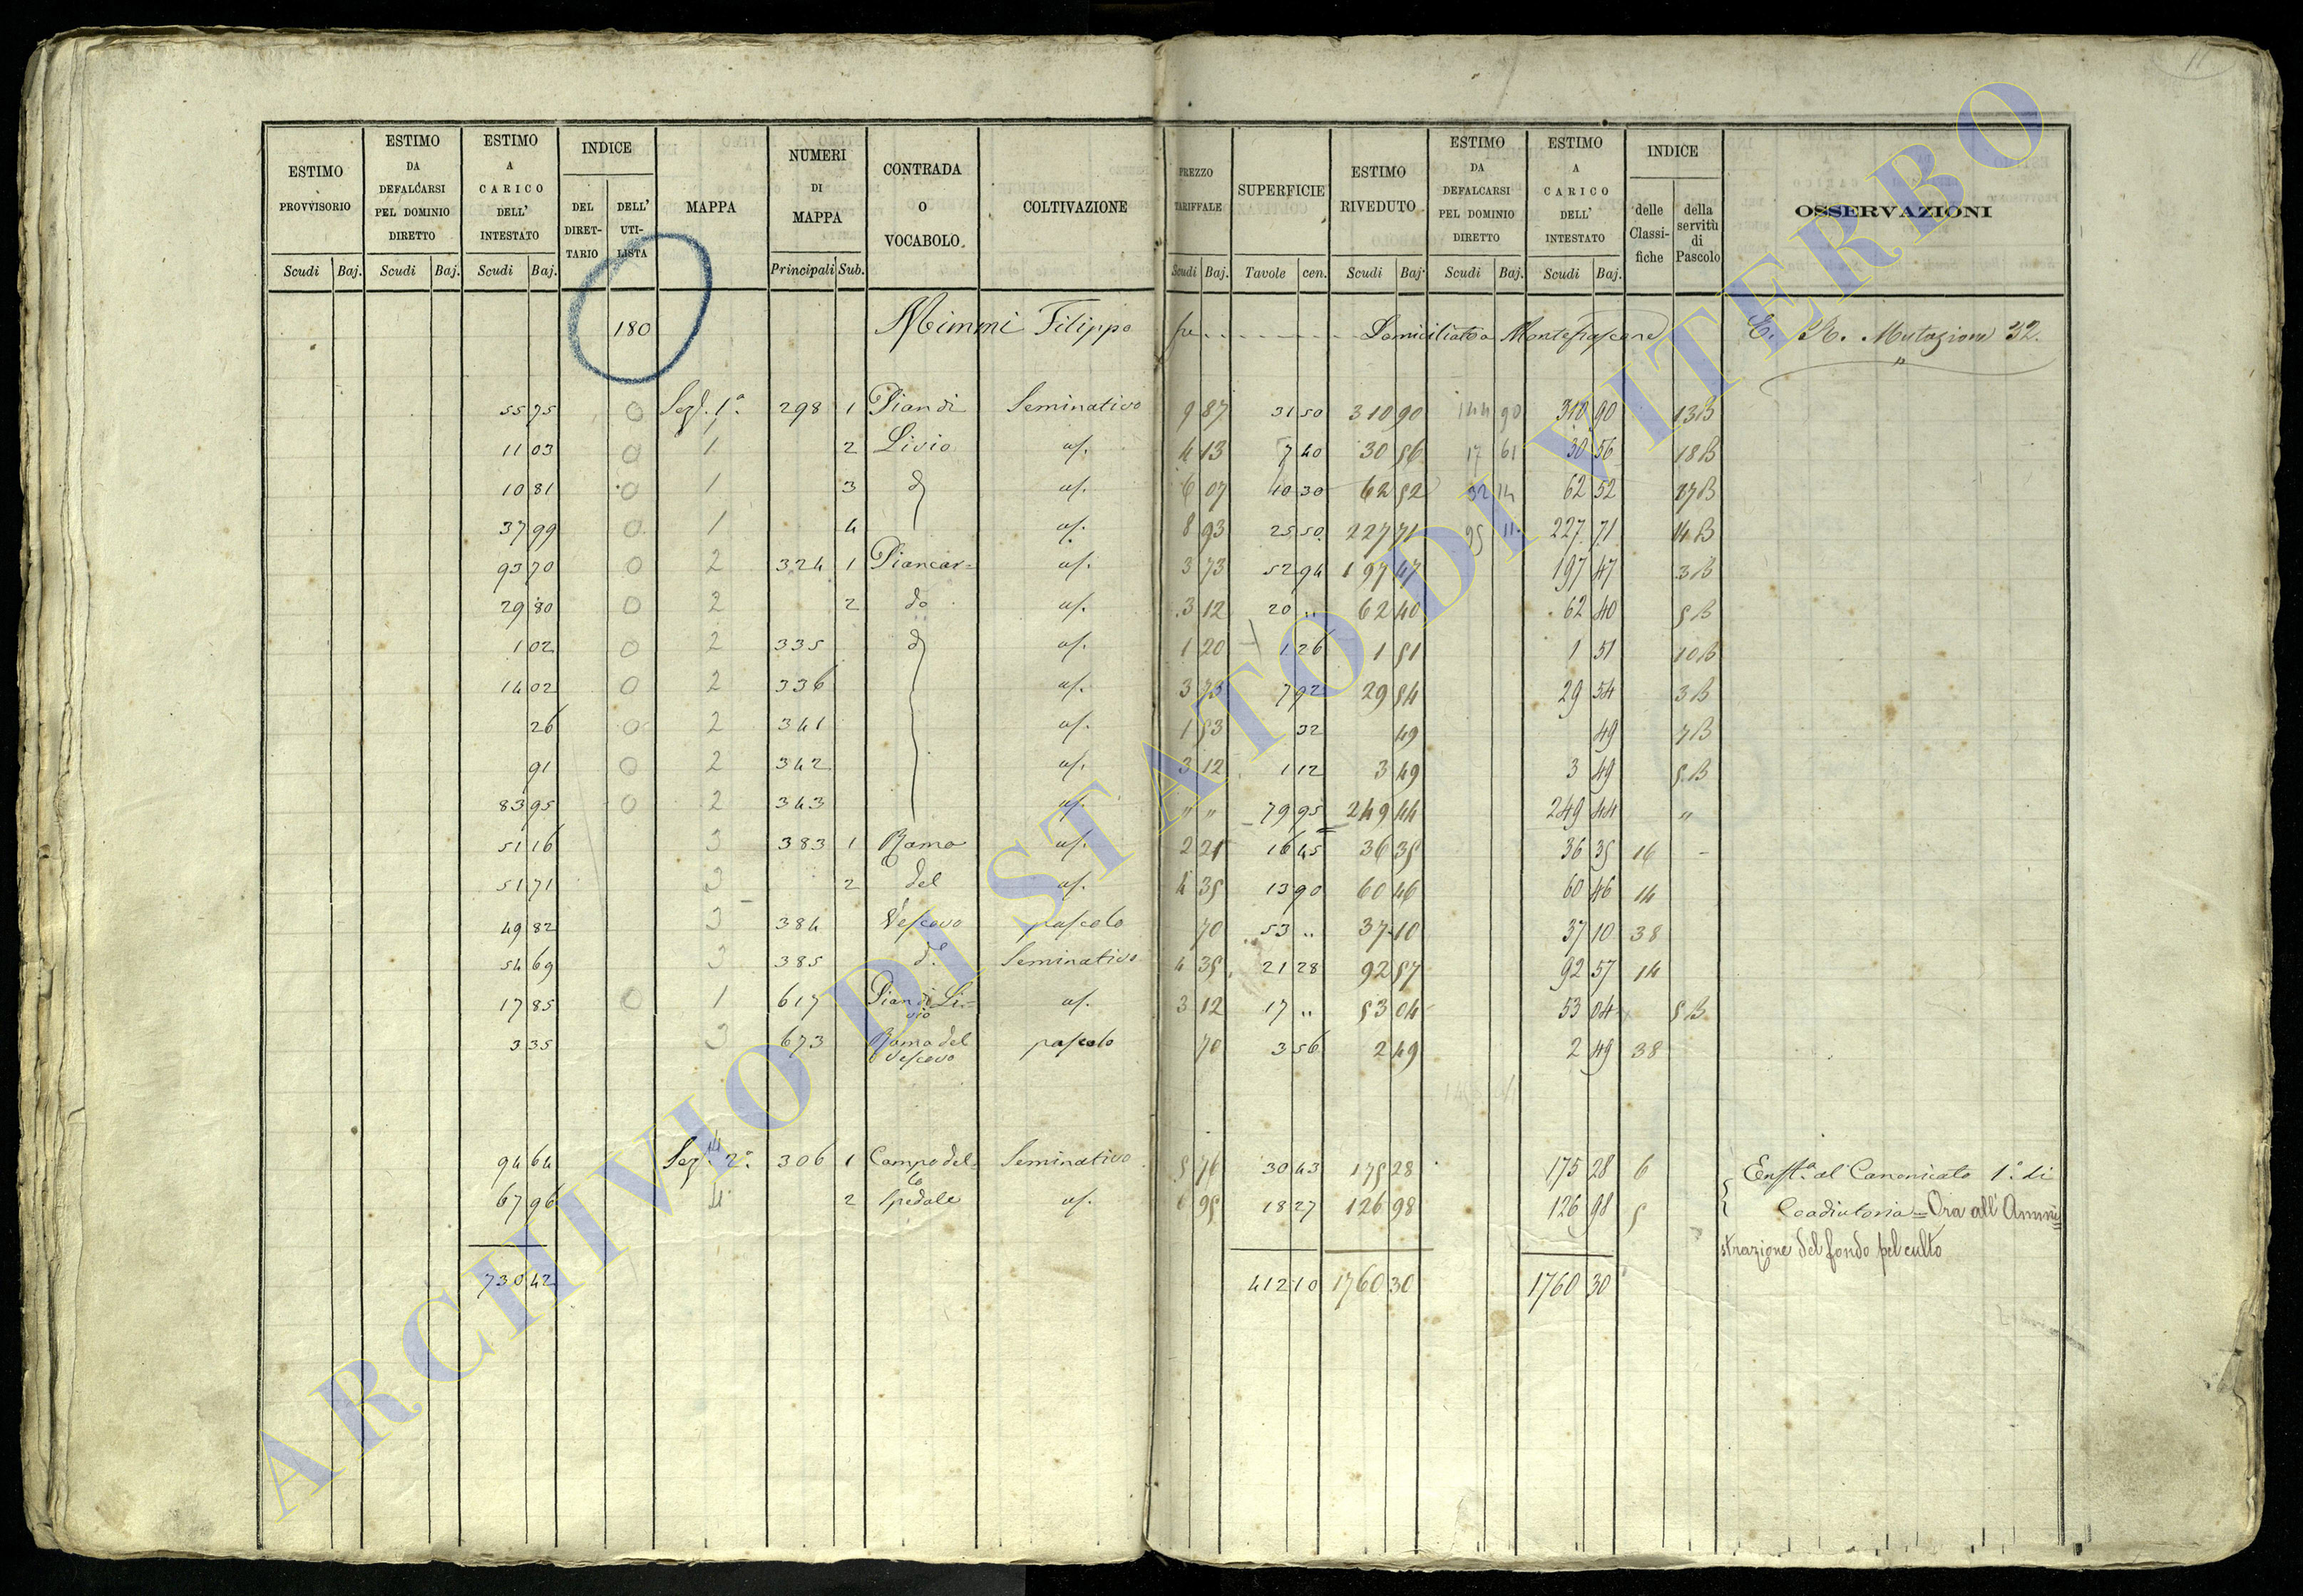 11
ESTIMO PROVVISORIO Scudi Baj.
ESTIMO DA DEFALCARSI PEL DOMINIO DIRETTO Scudi Baj.
ESTIMO A CARICO DELL' INTESTATO Scudi Baj.
INDICE DEL DIRETTARIO DELL' UTILISTA
MAPPA
NUMERI DI MAPPA Principali Sub.
CONTRADA O VOCABOLO.
COLTIVAZIONE
PREZZO TARIFFALE Scudi Baj.
SUPERFICIE Tavole cen.
ESTIMO RIVEDUTO Scudi Baj.
ESTIMO DA DEFALCARSI PEL DOMINIO DIRETTO Scudi Baj.
ESTIMO A CARICO DELL' INTESTATO Scudi Baj.
INDICE delle Classifiche della servitù di Pascolo
OSSERVAZIONI
180 Mimmi Filippo Domiciliato a Montefiascone E. R. Mutazione 32.
55 75 0 Sez. 1ª 298 1 Pian di Seminativo 9 87 31 50 310 90 144 90 310 90 13B
11 03 0 1 2 Livio 4 13 7 40 30 56 17 61 30 56 18B
10 81 0 1 3 6 07 10 30 62 52 32 14 62 52 17B
37 99 0 1 4 8 93 25 50 227 71 95 11 227 71 14B
93 70 0 2 324 1 Piancar= 3 73 52 94 197 47 197 47 3B
29 80 0 2 2 do 3 12 20 " 62 40 62 40 5B
1 02 0 2 335 1 20 1 26 1 51 1 51 10B
14 02 0 2 336 3 73 7 92 29 54 29 54 3B
26 0 2 341 1 53 32 49 49 7B
91 0 2 342 3 12 1 12 3 49 3 49 5B
83 95 0 2 343 " " 79 95 249 44 249 44 "
51 16 3 383 1 Ramo 2 21 16 45 36 35 36 35 16
51 71 3 2 del 4 35 13 90 60 46 60 46 14
49 82 3 384 Vescovo pascolo 70 53 " 37 10 37 10 38
54 69 3 385 d. Seminativo 4 35 21 28 92 57 92 57 14
17 85 0 1 617 Pian di Livio 3 12 17 " 53 04 53 04 5B
3 35 3 673 Ramo del Vescovo pascolo 70 3 56 2 49 2 49 38
94 64 Sez. 2ª 4 306 1 Campo dello Seminativo 5 76 30 43 175 28 175 28 6 Enfta al Canonicato 1º di
67 96 4 2 Spedale 6 95 18 27 126 98 126 98 5 Coadiutoria = Ora all' Ammini=
strazione del fondo pel culto
730 42 412 10 1760 30 1760 30
ARCHIVIO DI STATO DI VITERBO